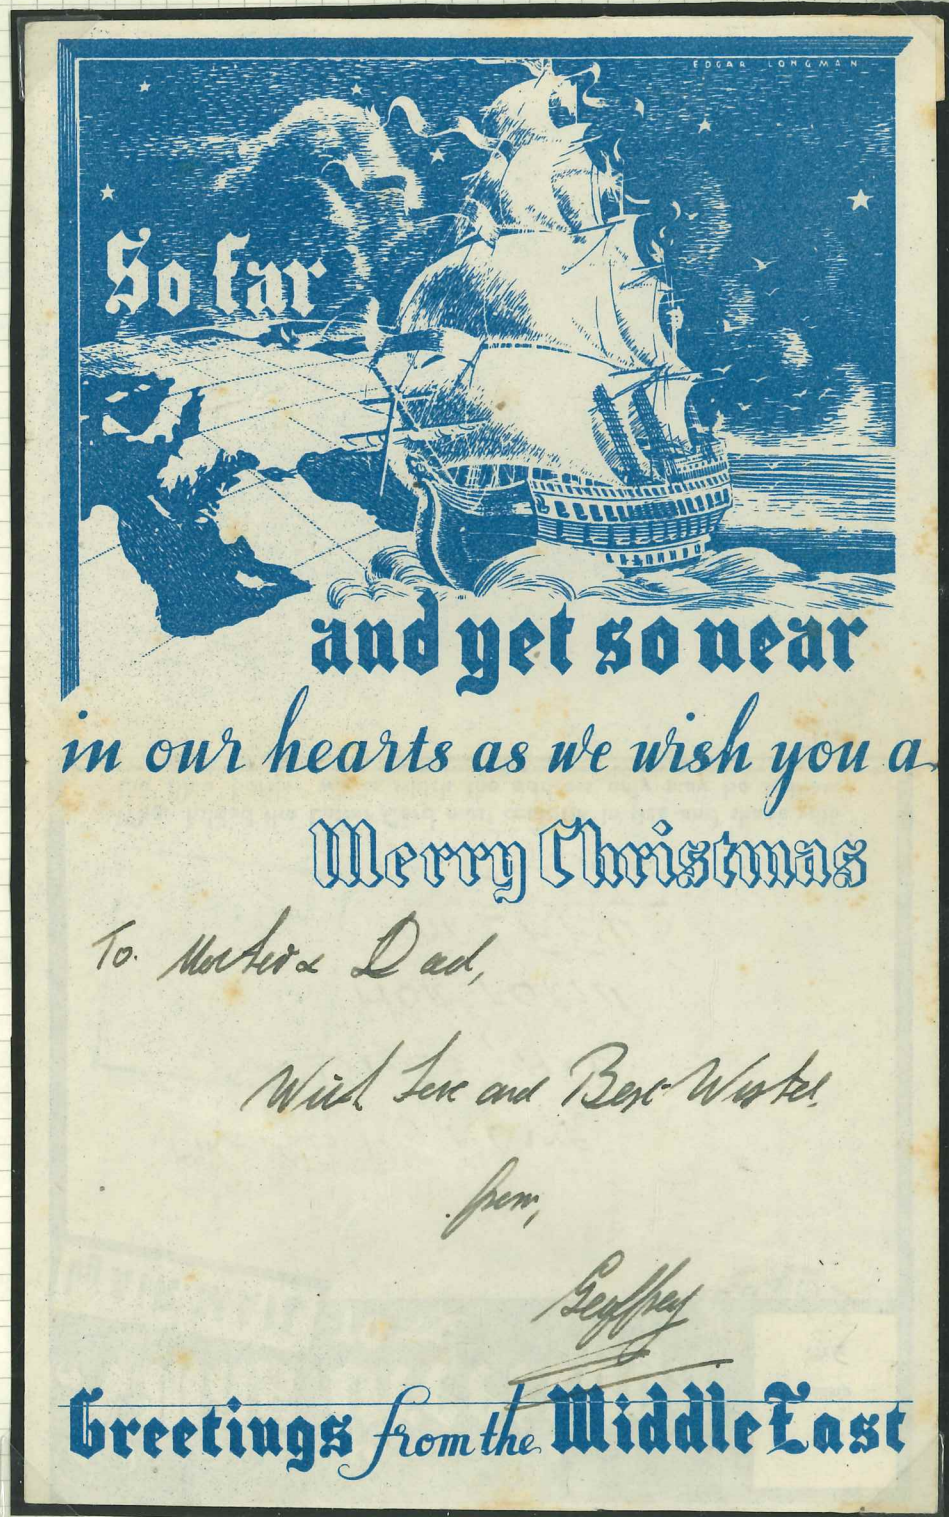 EDGAR LONGMAN
So far
and yet so near
in our hearts as we wish you a
Merry Christmas
To. Mother & Dad,
With Love and Best Wishes.
from,
Geoffrey
Greetings from the Middle East